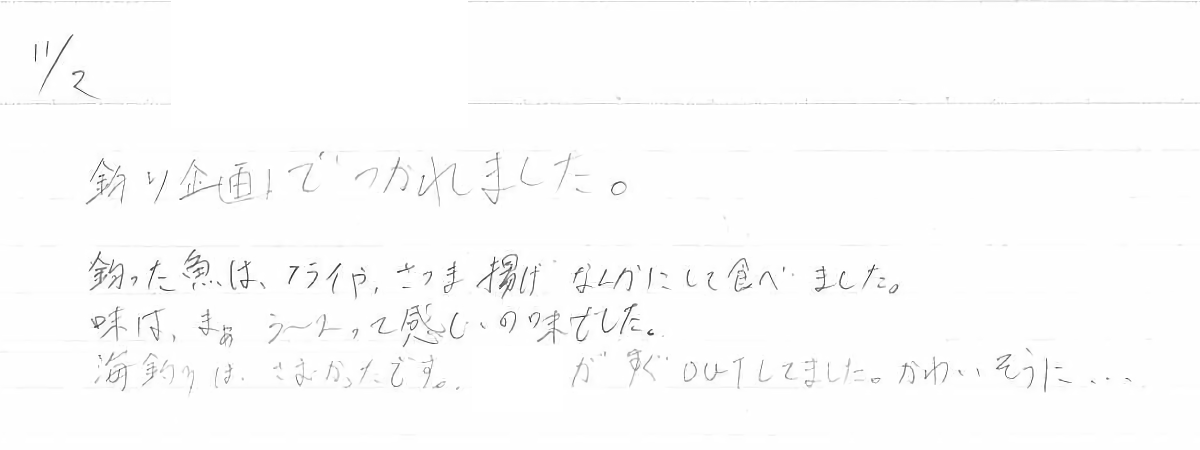 11/2
釣り企画でつかれました。
釣った魚は、フライや、さつま揚げなんかにして食べました。
味は、まぁ う〜んって感じの味でした。
海釣りは、さむかったです。 がすぐOUTしてました。かわいそうに...